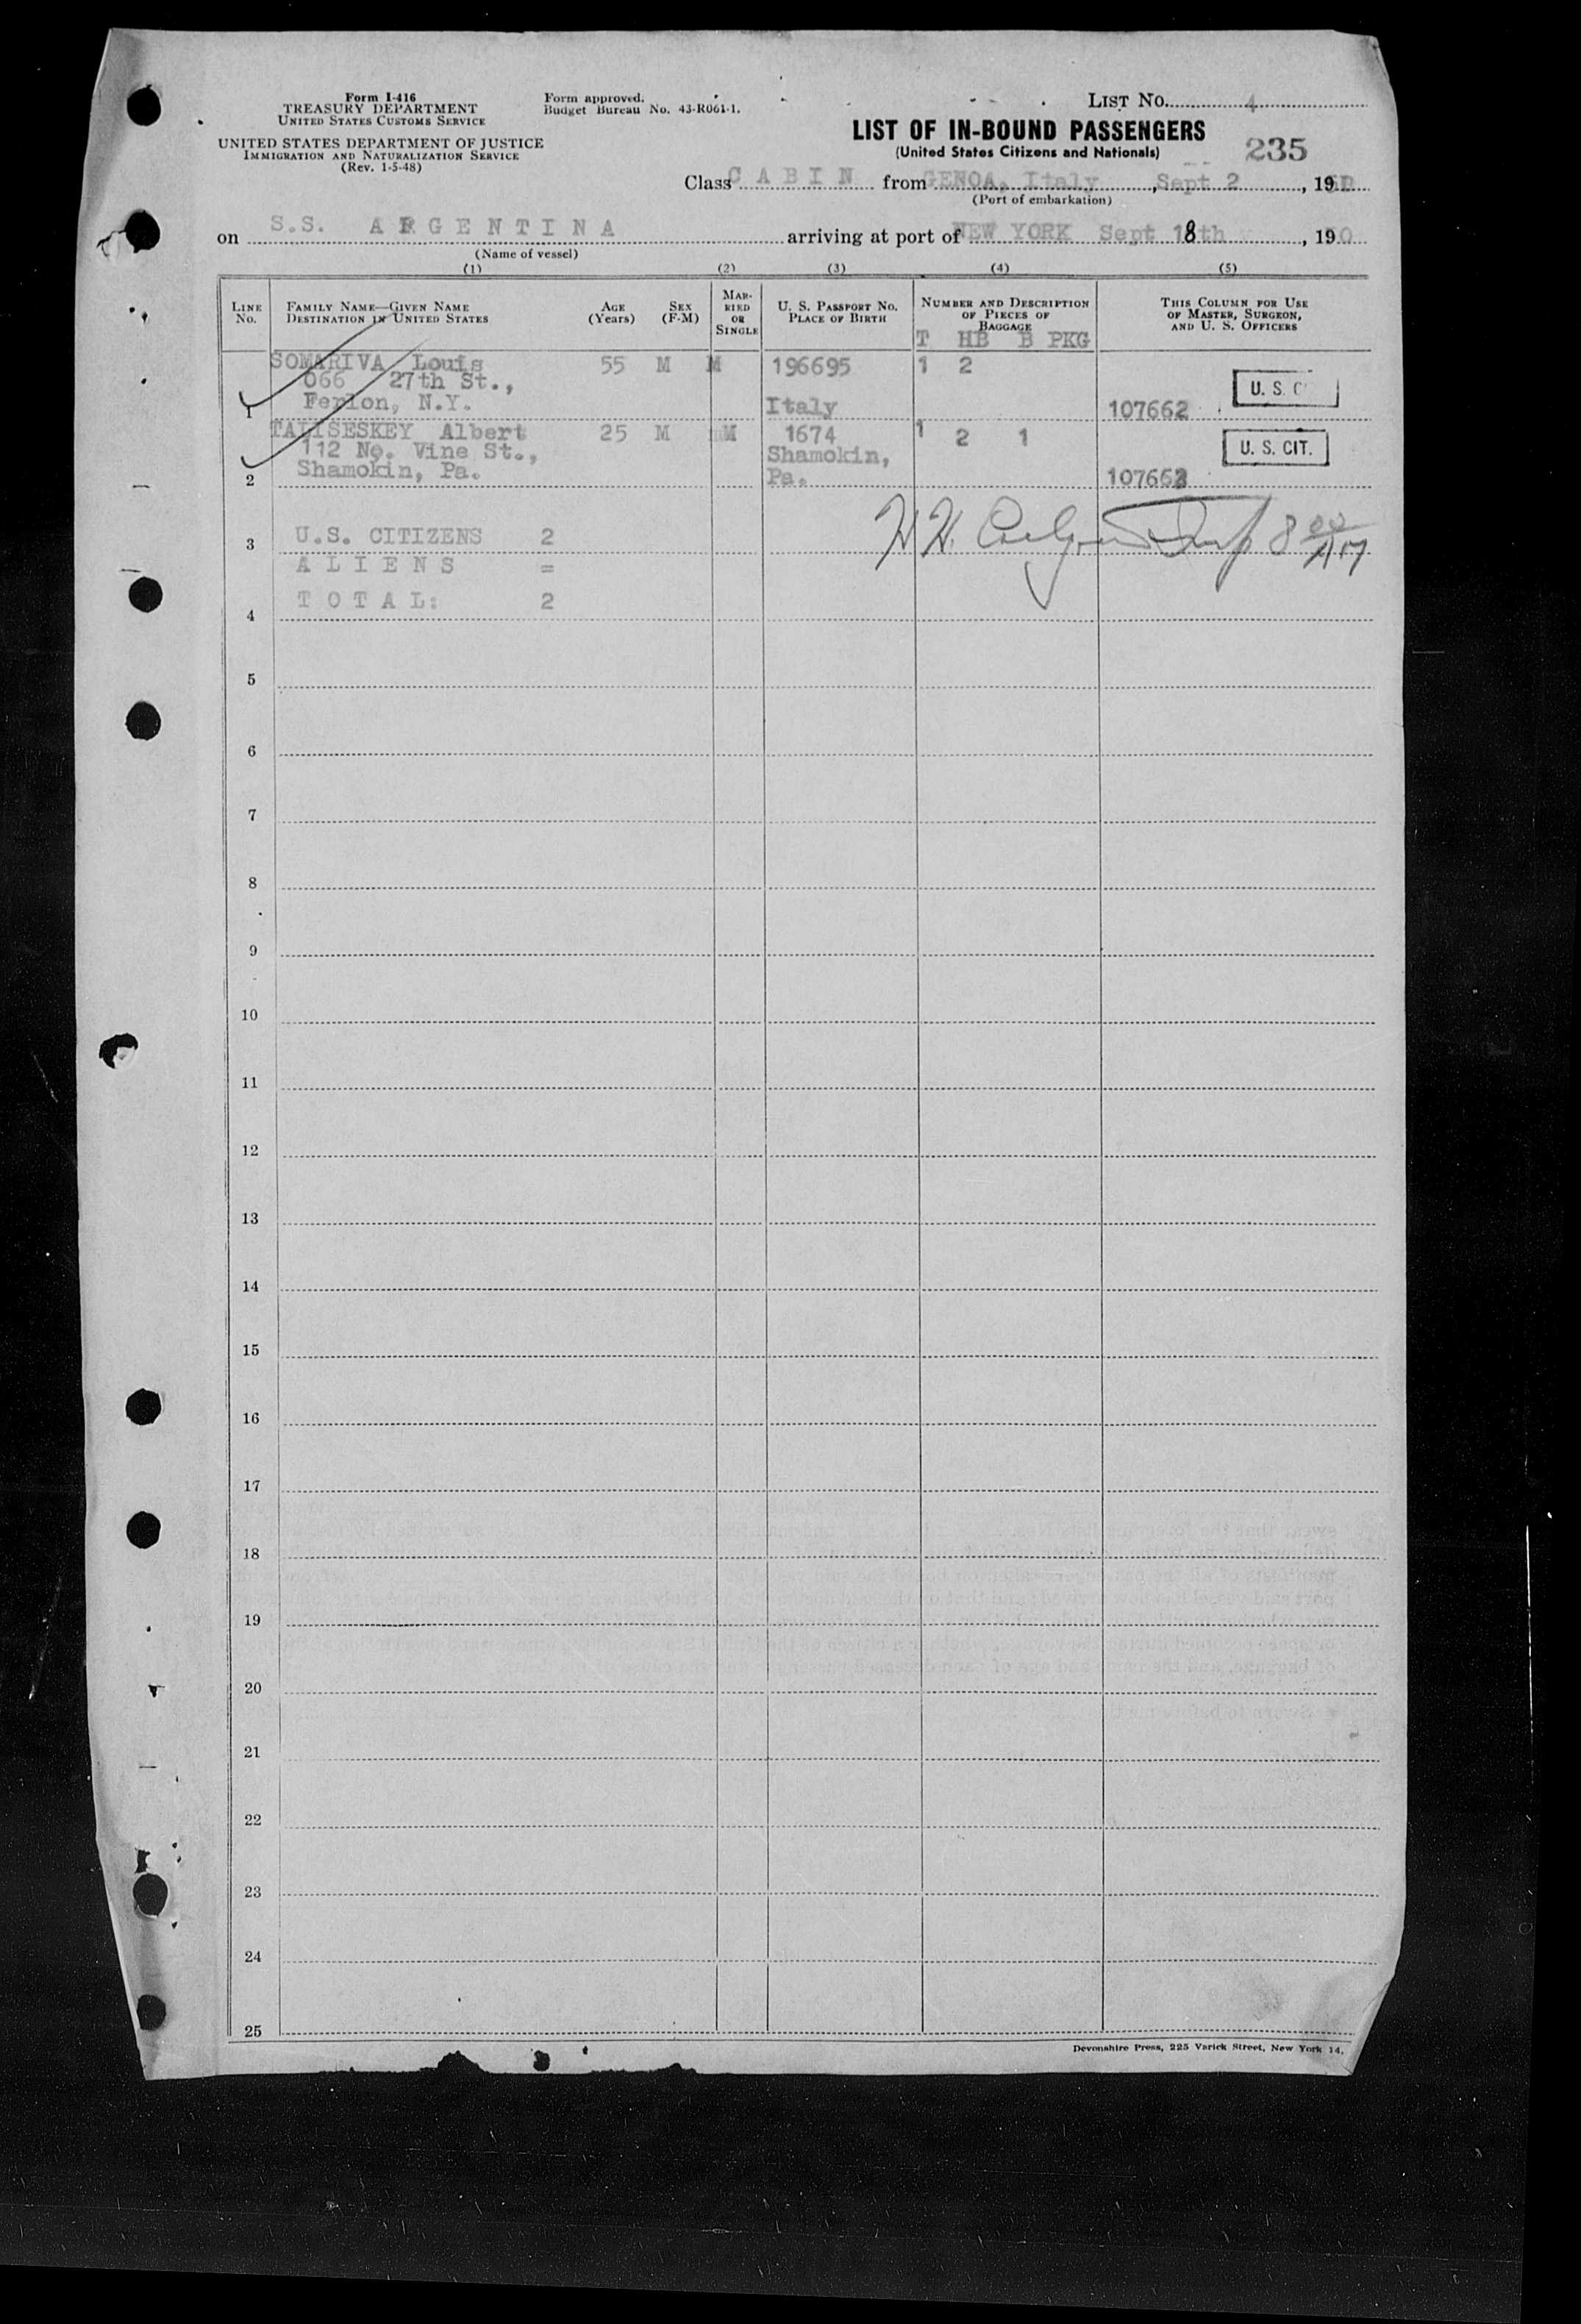 Form I-416
TREASURY DEPARTMENT
UNITED STATES CUSTOMS SERVICE
UNITED STATES DEPARTMENT OF JUSTICE
IMMIGRATION AND NATURALIZATION SERVICE
(Rev. 1-5-48)
Form approved.
Budget Bureau No. 43-R061-1.
LIST NO. 4
LIST OF IN-BOUND PASSENGERS
(United States Citizens and Nationals)
235
Class CABIN from GENOA, Italy, Sept 2, 19
(Port of embarkation)
on S.S. ARGENTINA arriving at port of NEW YORK Sept 18th, 19
(Name of vessel)
(1) (2) (3) (4) (5)
LINE NO. FAMILY NAME—GIVEN NAME DESTINATION IN UNITED STATES AGE (Years) SEX (F-M) MARRIED OR SINGLE U. S. PASSPORT NO. PLACE OF BIRTH NUMBER AND DESCRIPTION OF PIECES OF BAGGAGE THIS COLUMN FOR USE OF MASTER, SURGEON, AND U. S. OFFICERS
T HB B PKG
SOMARIVA Louis 55 M M 196695 1 2
066 27th St.,
U. S. C
1 Ferlon, N.Y. Italy 107662
TALISESKEY Albert 25 M M 1674 1 2 1
112 No. Vine St., Shamokin, U. S. CIT.
2 Shamokin, Pa. Pa. 107663
3 U.S. CITIZENS 2
H.H. 8 00
ALIENS =
4 TOTAL: 2
5
6
7
8
9
10
11
12
13
14
15
16
17
18
19
20
21
22
23
24
25
Devonshire Press, 225 Varick Street, New York 14.